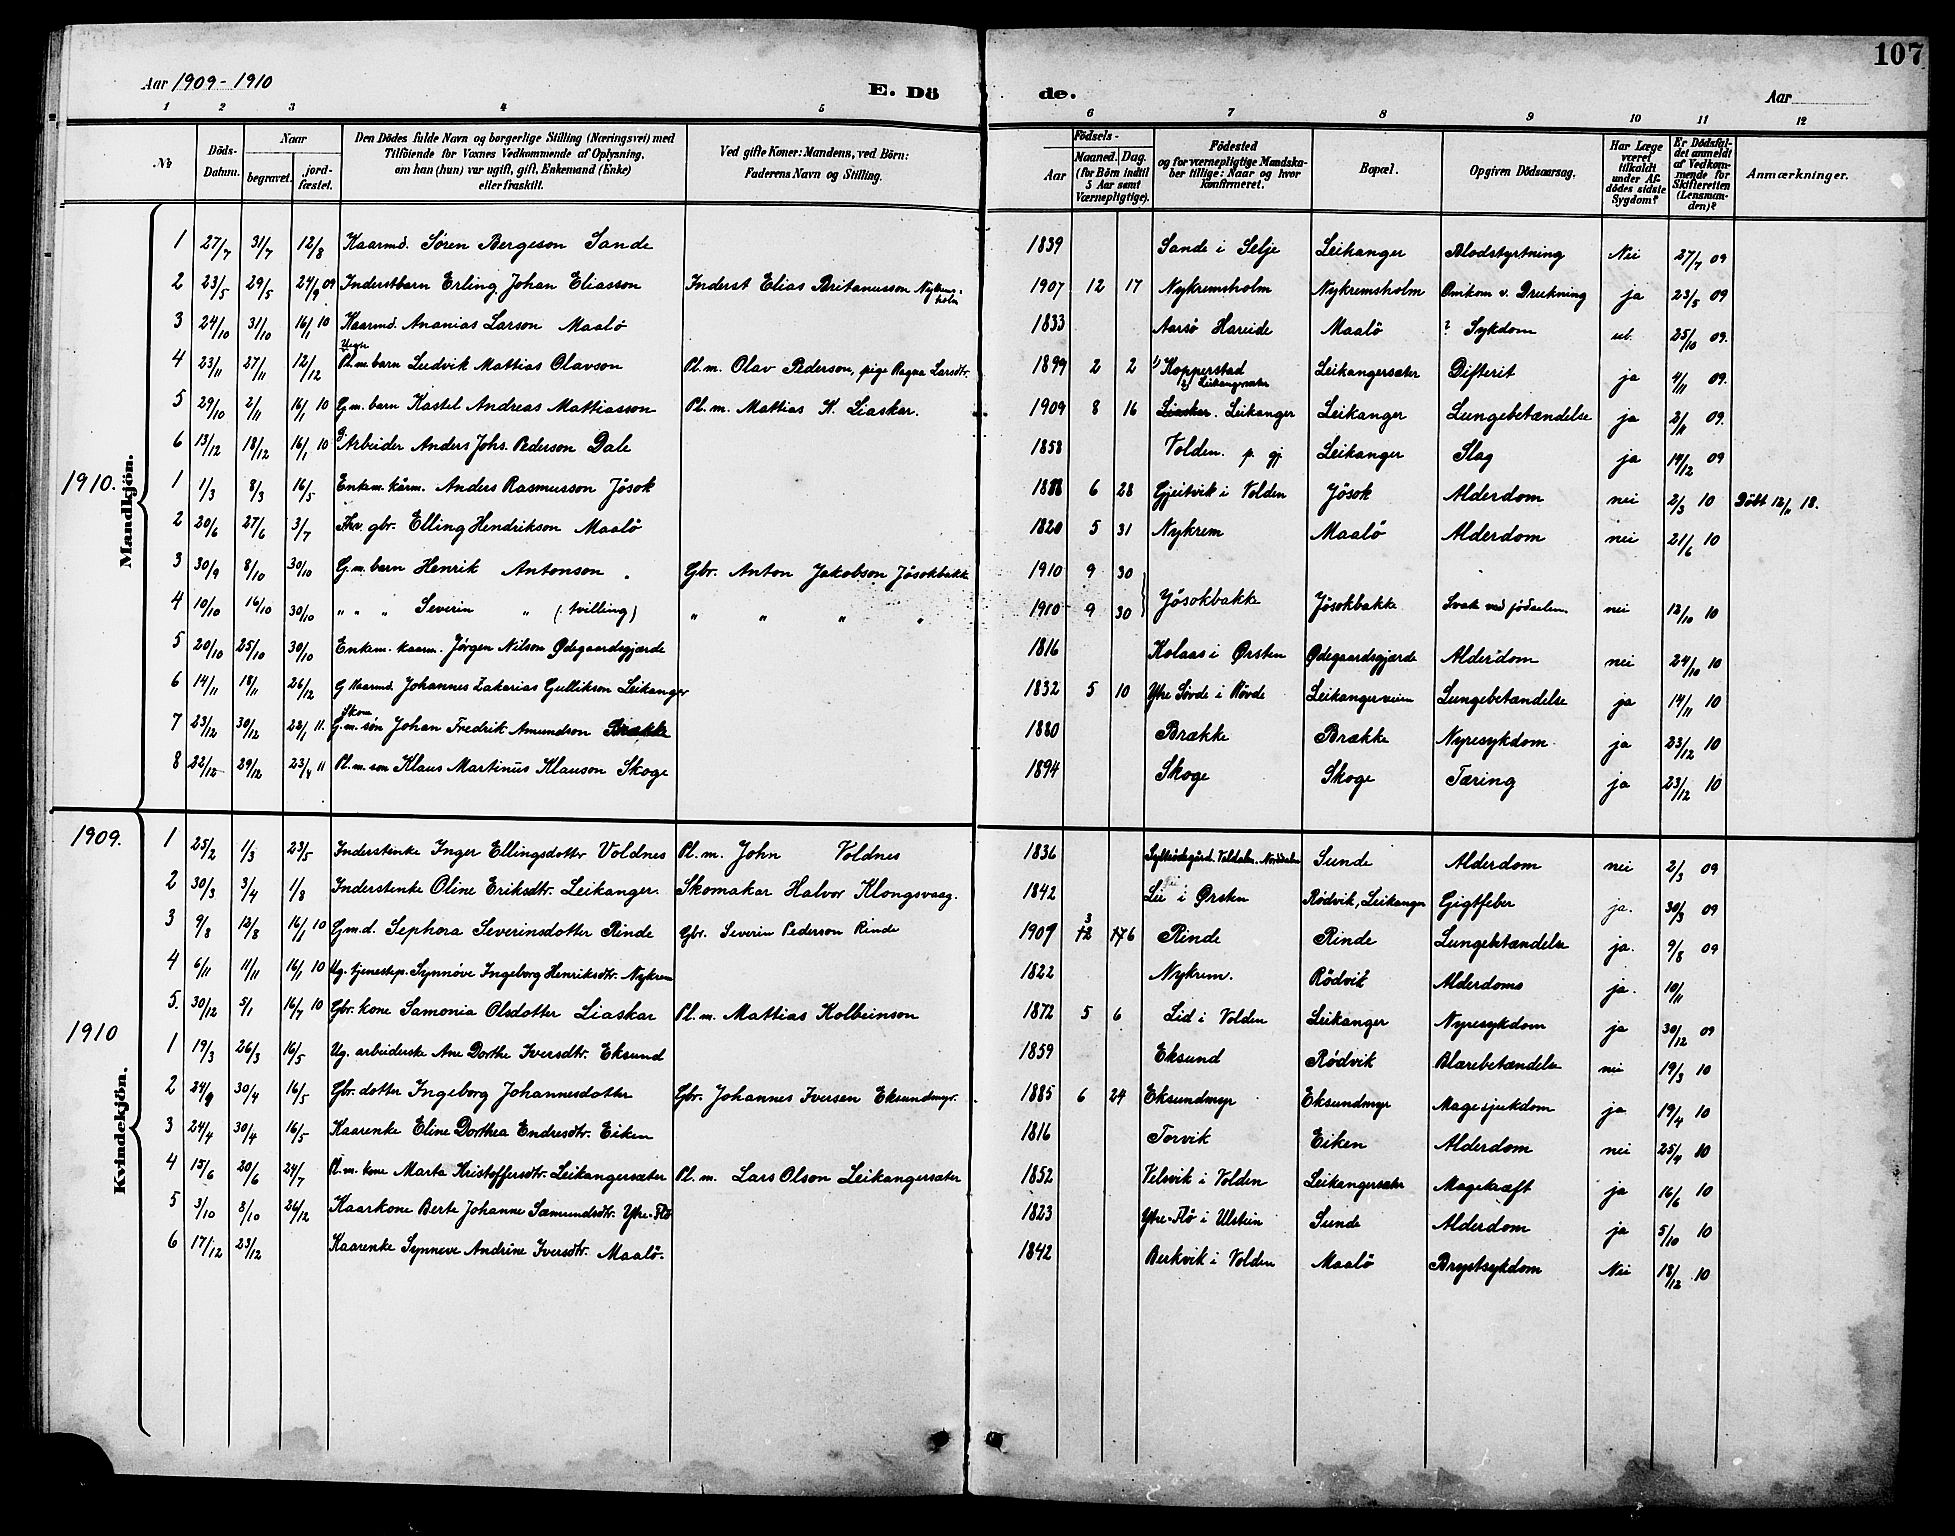 107
Aar 1909-1910 E. Dö de. Aar
1 2 3 4 5 6 7 8 9 10 11 12
No Döds-Datum. Naar begravet. jord-fæstet. Den Dödes fulde Navn og borgerlige Stilling (Næringsvei) med Tilföiende for Voxnes Vedkommende af Oplysning, om han (hun) var ugift, gift, Enkemand (Enke) eller fraskilt. Ved gifte Koner: Mandens, ved Börn: Faderens Navn og Stilling. Födsels- Aar Maaned. Dag. (for Börn indtil 5 Aar samt Værnepligtige). Födested og for værnepligtige Mandskaber tillige: Naar og hvor konfirmeret. Bopæl. Opgiven Dödsaarsag. Har Læge været tilkaldt under Afdödes sidste Sygdom? Er Dödsfaldet anmeldt af Vedkommende for Skifteretten (Lensmanden)? Anmærkninger.
Mandkjön.
1 27/7 31/7 12/8 Kaarmd. Søren Bergeson Sande 1839 Sande i Selje Leikanger Blodstyrtning Nei 27/7 09
2 23/5 29/5 24/9 09 Inderstbarn Erling Johan Eliasson Inderst Elias Britanusson Nykremsholm 1907 12 17 Nykremsholm Nykremsholm Omkom v. Drukning ja 23/5 09
3 24/10 31/10 16/1 10 Kaarmd. Ananias Larson Maalö 1833 Aarsø Hareide Maalö ? Sykdom ub. 25/10 09.
4 23/11 27/11 12/12 Uegte Pl.m. barn Ludvik Mattias Olavson Pl. m. Olav Pederson, pige Ragna Larsdtr. 1899 2 2 1) Kopperstad 2) Leikangersæter Leikangersæter Difterit ja 4/11 09.
5 29/10 2/11 16/1 10 G.m. barn Kastel Andreas Mattiasson Pl. m. Mattias K. Liaskar. 1909 8 16 Liaskar. Leikanger Leikanger Lungebetændelse ja 2/11 09.
6 13/12 18/12 16/1 10 g. Arbeider Anders Johs. Pederson Dale 1858 Volden. p. gj Leikanger Slag ja 14/12 09
1910.
1 1/3 8/3 16/5 Enkem. kårm. Anders Rasmusson Jösok 1818 6 28 Gjeitvik i Volden Jösok Alderdom nei 2/3 10 Döbt 12/11 18.
2 20/6 27/6 3/7 Fhv. gbr. Elling Hendrikson Maalö 1820 5 31 Nykrem Maalö Alderdom nei 21/6 10
3 30/9 8/10 30/10 G.m. barn Henrik Antonson Gbr. Anton Jakobson Jösokbakke 1910 9 30
4 10/10 16/10 30/10 " " " Severin " (tvilling) " " " " 1910 9 30 Jösokbakke Jösokbakke Svak ved fødselen nei 12/10 10
5 20/10 25/10 30/10 Enkem. kaarm. Jørgen Nilson Ødegaardsgjærde 1816 Kolaas i Ørsten Ødegaardsgjærde Alderdom nei 24/10 10
6 14/11 18/11 26/12 G Kaarmd. Johannes Zakarias Gullikson Leikanger 1832 5 10 Ytre Sövde i Rövde Lungebetændelse ja 14/11 10
7 23/12 30/12 22/1 11. G.m. søn Johan Fredrik Amundson Brække 1880 Brække Brække Nyresykdom. ja 23/12 10
8 22/12 29/12 23/4 11 Pl. m. søn Klaus Martinus Klauson Skoge 1894 Skoge Skoge Tæring ja 23/12 10
1909.
Kvindekjön.
1 25/2 1/3 23/5 Inderstenke Inger Ellingsdottr Voldnes Pl. m. John Voldnes 1836 Sunde Alderdom nei 2/3 09
2 30/3 3/4 1/8 Inderstenke Oline Eriksdtr. Leikanger. Skomakar Halvor Klongsvaag. 1842 i Ørsten Rødvik, Leikanger Gigtfeber ja. 30/3 09
3 9/8 12/8 16/1 10 Gm.d. Sephora Severinsdotter Rinde Gbr. Severin Pederson Rinde 1909 3 6 Rinde Rinde Lungebetændelse ja. 9/8 09
4 6/11 11/11 16/1 10 Ug. tjenestep. Synnøve Ingeborg Henriksdtr. Nykrem 1822 Nykrem. Rödvik Alderdoms ja. 10/11
5. 30/12 5/1 16/7 10 Gbr. kone Samonia Olsdotter Liaskar Pl. m. Mattias Kolbeinson 1872 5 6 Lid i Volden Leikanger Nyresykdom ja 30/12 09
1910
1 19/3 26/3 16/5 Ug. arbeiderske Ane Dorthe Iversdtr. Eksund 1859 Eksund Rødvik Blærebetændelse nei 19/3 10
2 30/4 16/5 Gbr. dotter Ingeborg Johannesdotter Gbr. Johannes Iversen Eksundmyr. 1885 6 24 Eksundmyr Eksundmyr Magesjukdom ja 19/4 10
3 24/4 30/4 16/5 Kaarenke Eline Dorthea Endresdtr. Eiken 1816 Torvik Eiken Alderdom nei 25/4 10
4 15/6 20/6 24/7 Pl. m. kone Marta Kristoffersdtr. Leikangersæter Pl. m. Lars Olson Leikangersæter 1852 Velsvik i Volden Leikangersæter Magekræft ja 16/6 10
5 3/10 8/10 26/12 Kaarkone Berte Johanne Sæmundsdtr. Ytre-Flö 1823 Ytre-Flö i Ulstein Sunde Alderdom ja 5/10 10
6 17/12 23/12 Kaarenke Synneve Andrine Iversdtr. Maalö. 1842 Berkvik i Volden Maalö Brystsykdom Nei 18/12 10